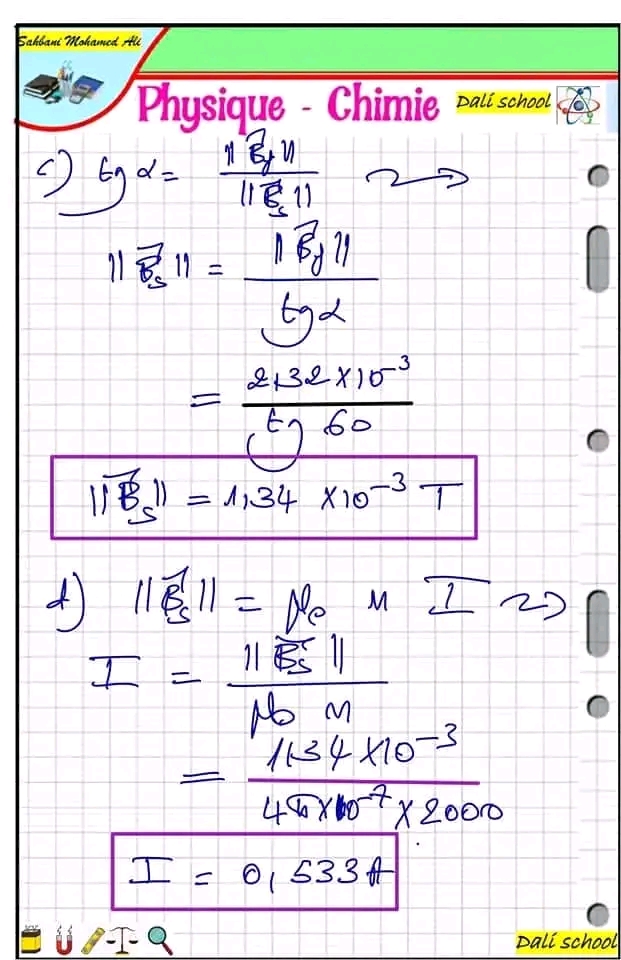 Sahbani Mohamed Ali
Physique - Chimie Dali school
c) tg α = ||B⃗d|| / ||B⃗s|| ⟿
||B⃗s|| = ||B⃗d|| / tg α
= 2,32 × 10⁻³ / tg 60
||B⃗s|| = 1,34 × 10⁻³ T
d) ||B⃗s|| = μ₀ n I ⟿
I = ||B⃗s|| / μ₀ n
= 1,34 × 10⁻³ / 4π × 10⁻⁷ × 2000
I = 0,533 A
Dali school